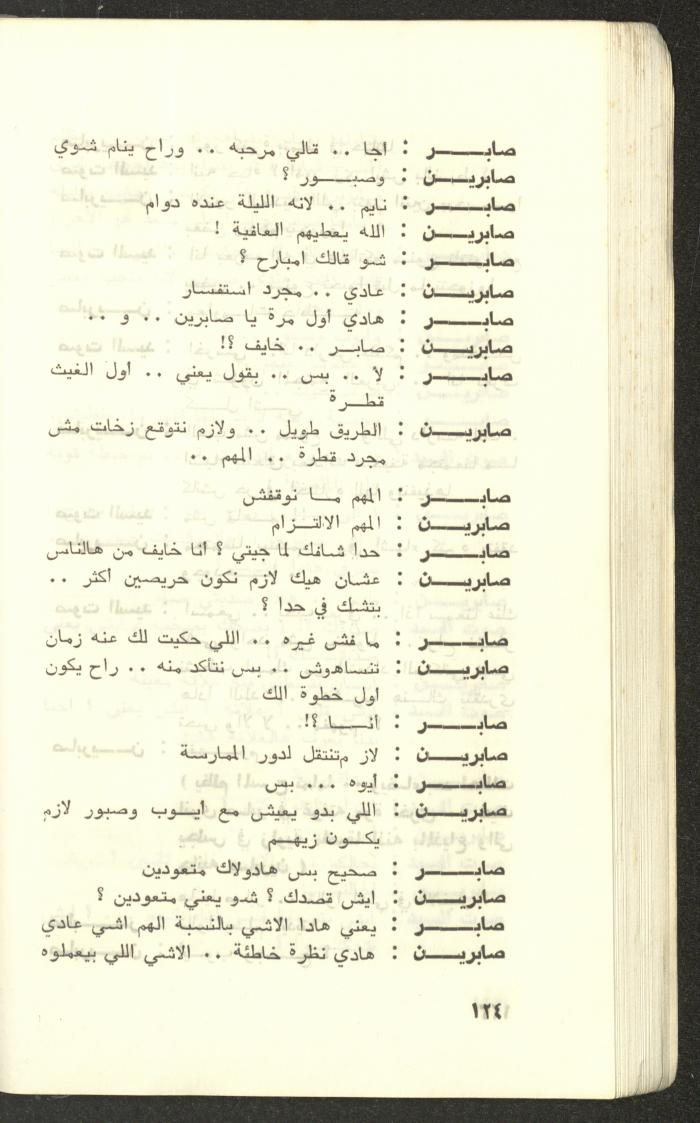 صابـــــر : اجا .. قالي مرحبه .. وراح ينام شوي
صابريــــن : وصبـــــور ؟
صابـــــر : نايم .. لانه الليلة عنده دوام
صابريــــن : الله يعطيهم العافية !
صابـــــر : شو قالك امبارح ؟
صابريــــن : عادي .. مجرد استفسار
صابـــــر : هادي أول مرة يا صابرين .. و ..
صابريــــن : صابـر .. خايف ؟!
صابـــــر : لأ .. بس .. بقول يعني .. أول الغيث
قطـــرة
صابريــــن : الطريق طويل .. ولازم نتوقع زخات مش
مجرد قطرة .. المهم ..
صابـــــر : المهم مــا نوقفش
صابريــــن : المهم الالتـزام
صابـــــر : حدا شافك لما جيتي ؟ أنا خايف من هالناس
صابريــــن : عشان هيك لازم نكون حريصين أكثر ..
بتشك في حدا ؟
صابـــــر : ما فش غيره .. اللي حكيت لك عنه زمان
صابريــــن : تنساهوش .. بس نتأكد منه .. راح يكون
اول خطوة الك
صابـــــر : أنـــا ؟!
صابريــــن : لاز متنتقل لدور الممارسة
صابـــــر : أيوه ... بس
صابريــــن : اللي بدو يعيش مع أيــوب وصبور لازم
يكــون زيهـم
صابـــــر : صحيح بس هادولاك متعودين
صابريــــن : ايش قصدك ؟ شو يعني متعودين ؟
صابـــــر : يعني هادا الاشي بالنسبة الهم اشي عادي
صابريــــن : هادي نظرة خاطئة .. الاشي اللي بيعملوه
١٢٤